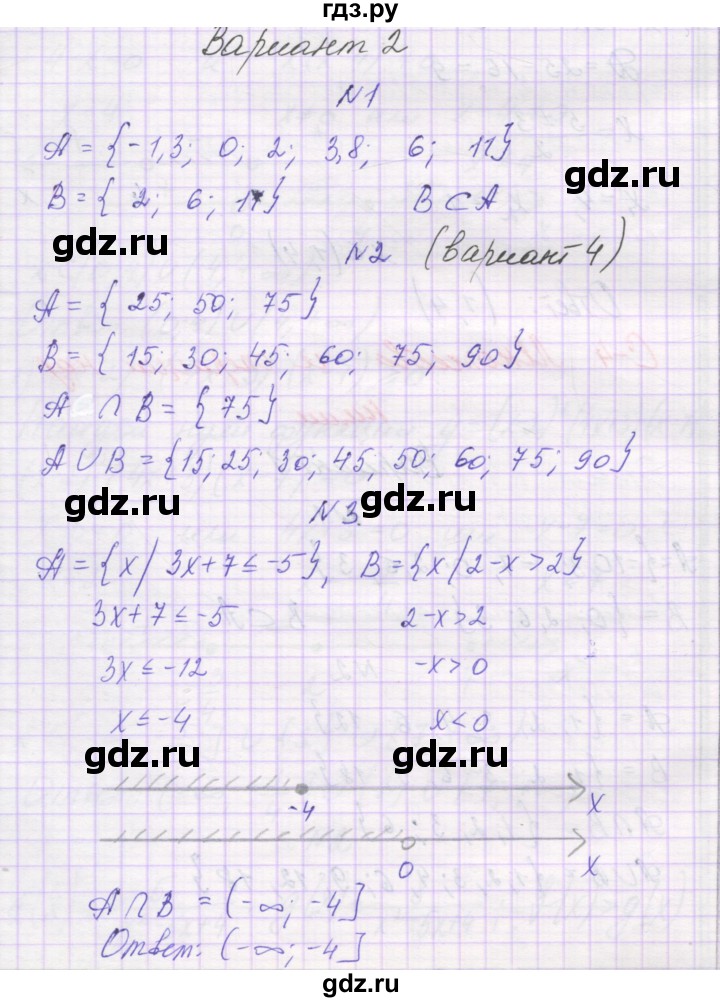 гдз.ру
Вариант 2
N1
A = {-1,3; 0; 2; 3,8; 6; 11}
B = { 2; 6; 11} B ⊂ A
gdz.ru
gdz.ru
N2 (вариант 4)
A = { 25; 50; 75}
B = { 15; 30; 45; 60; 75; 90}
A ∩ B = { 75}
A ∪ B = {15; 25; 30; 45; 50; 60; 75; 90}
gdz.ru
gdz.ru
N3.
A = {x/ 3x+7 ≤ -5}, B = {x/2-x>2}
3x+7 ≤ -5 2-x>2
3x ≤ -12 -x>0
x ≤ -4 x<0
gdz.ru
gdz.ru
-4 x
0 x
A ∩ B = (-∞; -4]
Ответ: (-∞; -4]
gdz.ru